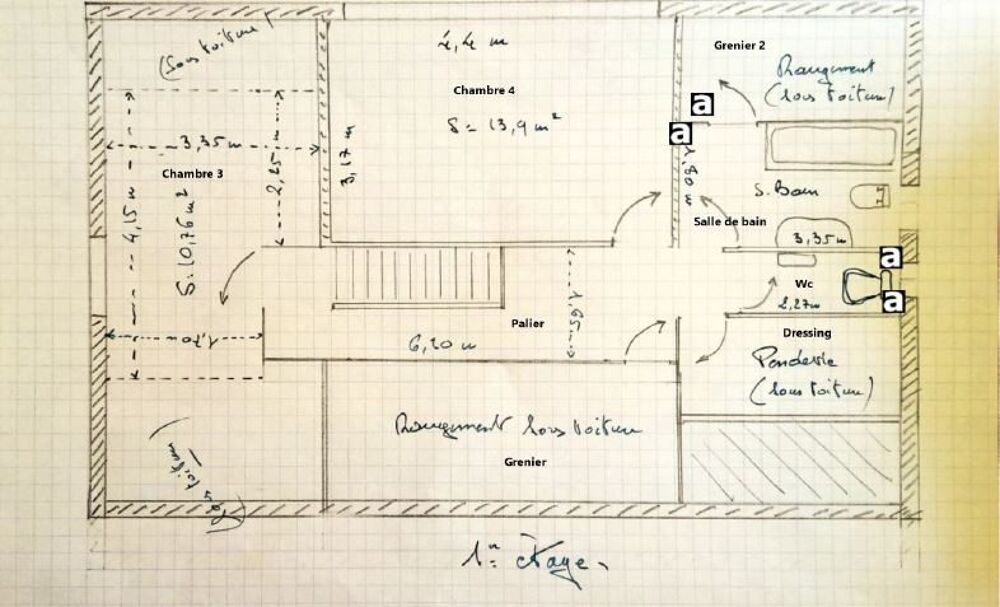 (Sous toiture)
4,4 m
Chambre 4
S = 13,9 m²
Grenier 2
Rangement
(sous toiture)
a
a
3,35 m
3,17 m
2,25 m
1,80 m
Chambre 3
4,15 m
S: 10,76 m²
S. Bain
Salle de bain
3,35m
a
Wc
2,27m
a
1,65 m
Palier
6,20 m
1,70
Dressing
Penderie
(sous toiture)
Rangement sous toiture
Grenier
(sous toiture)
1er étage.